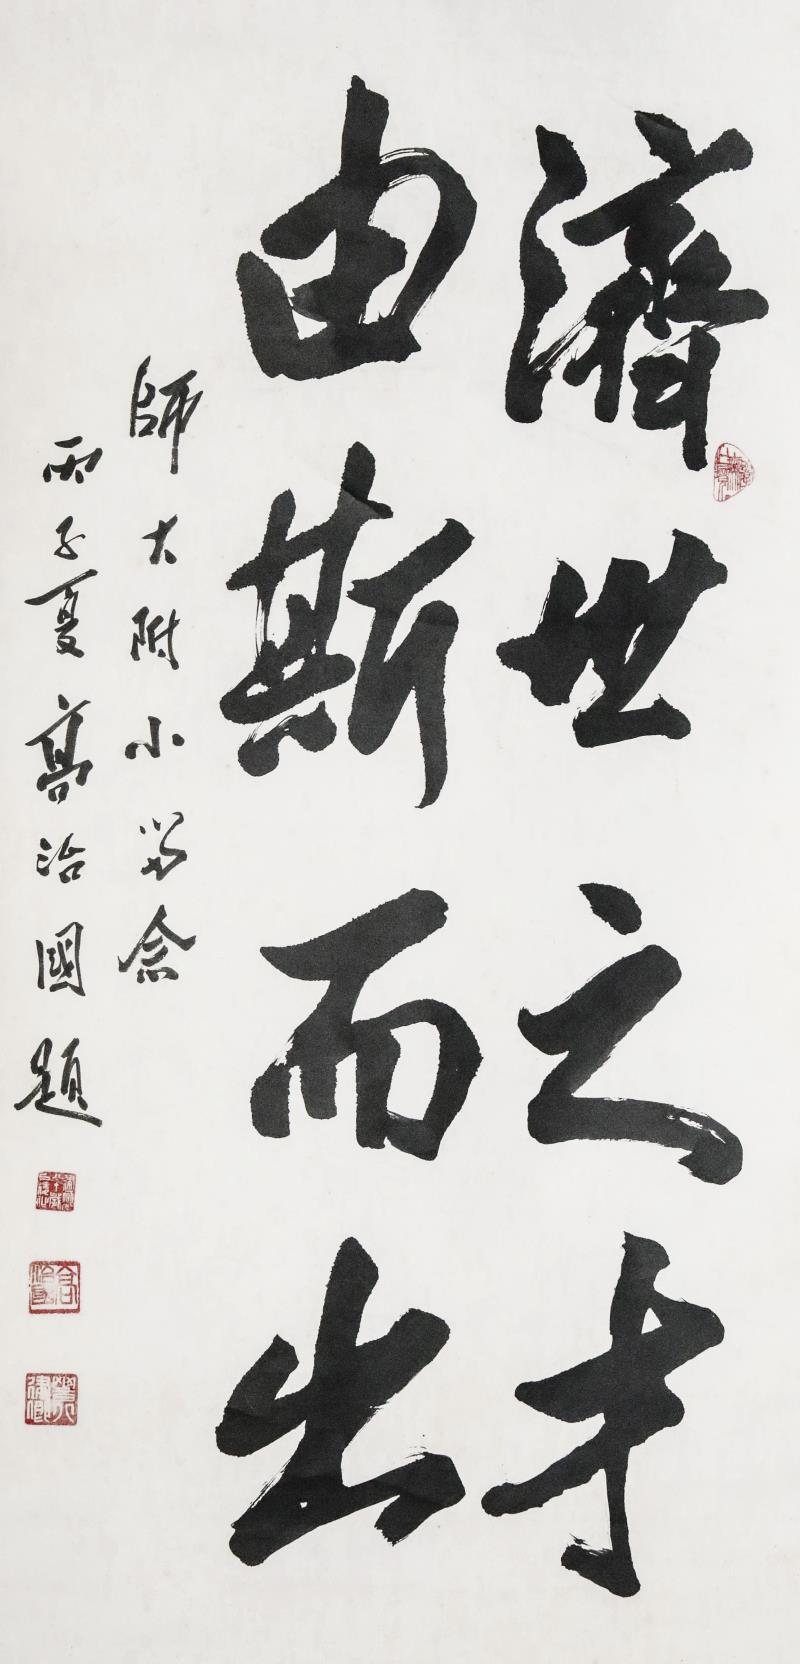 濟世之才
由斯而出
師大附小留念
丙子夏高治國題